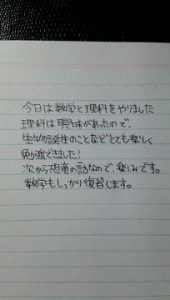 今日は数学と理科をやりました
理科は興味があったので、
生物誕生のことなどとても楽しく
勉強できました!
次から恐竜の話なので、楽しみです。
数学もしっかり復習します。